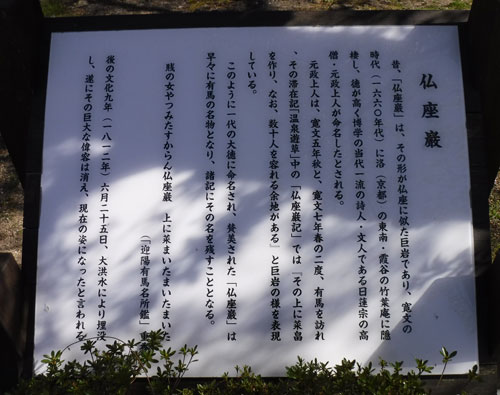 仏座巌
昔、「仏座巌」は、その形が仏座に似た巨岩であり、寛文の
時代（一六六〇年代）に洛（京都）の東南・霞谷の竹葉庵に隠
棲し、徳が高く博学の当代一流の詩人・文人である日蓮宗の高
僧・元政上人が命名したとされる。
元政上人は、寛文五年秋と、寛文七年春の二度、有馬を訪れ
、その滞在記「温泉遊草」中の「仏座巌記」では「その上に菜畠
を作り、なお、数十人を容れる余地がある」と巨岩の様を表現
している。
このように一代の大徳に命名され、賛美された「仏座巌」は
早々に有馬の名物となり、諸記にその名を残すこととなる。
賎の女やつみたすからん仏座巌　上に菜まいたまいたまいた
（「迎陽有馬名所鑑」
後の文化九年（一八一二年）六月二十五日、大洪水により埋没
し、遂にその巨大な偉容は消え、現在の姿になったと言われる